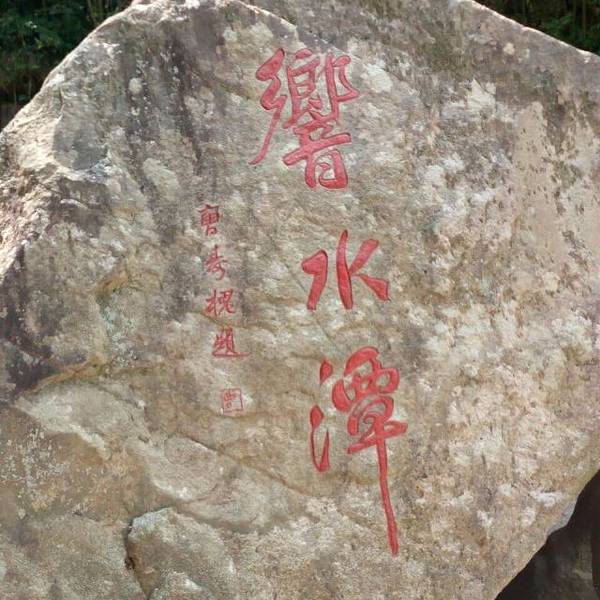 響水潭
曹秀槐題